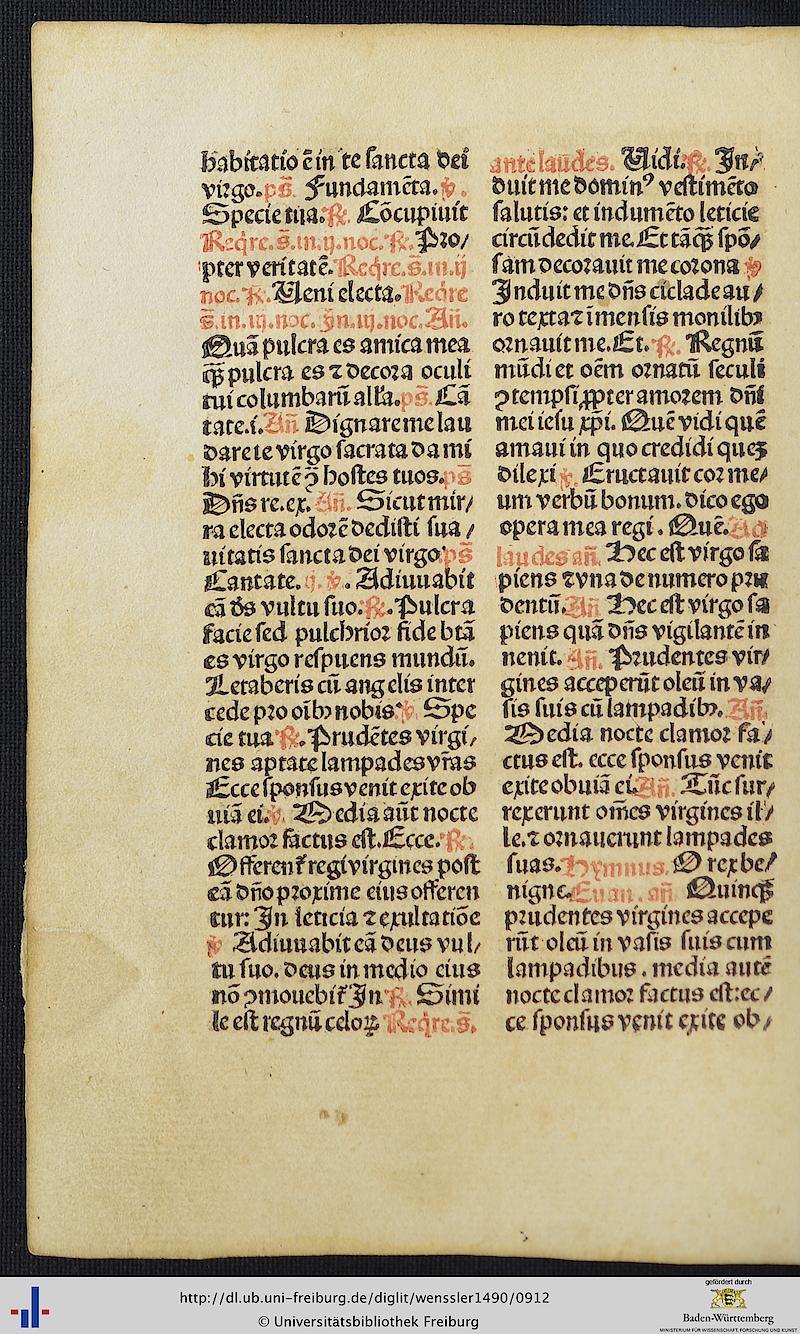 habitatio ē in te sancta dei
virgo. ps̄. Fundamēta. ℣.
Specie tua. ℟. Cōcupiuit
Reqͥre. s̄. in. ij. noc. ℟. Pro/
pter veritatē. Reqͥre. s̄. in. ij
noc. ℟. Ueni electa. Reqͥre
s̄. in. iij. noc. Jn. iij. noc. Añ.
Quā pulcra es amica mea
ꝙ̄ pulcra es ⁊ decora oculi
tui columbarū alła. ps̄. Cā
tate. i. Añ Dignare me lau
dare te virgo sacrata da mi
hi virtutē ↄ̄ hostes tuos. ps̄
Dñs re. ex. Añ. Sicut mir/
ra electa odorē dedisti sua/
uitatis sancta dei virgo. ps̄
Cantate. ij. ℣. Adiuuabit
eā de᷒ vultu suo. ℟. Pulcra
facie sed pulchrior fide btā
es virgo respuens mundū.
Letaberis cū angelis inter
cede pro oībꝫ nobis. ℣. Spe
cie tua ℟. Prudētes virgi/
nes aptate lampades vr̄as
Ecce sponsus venit exite ob
uiā ei. ℣. Media aūt nocte
clamor factus est. Ecce. ℟.
Offerent᷑ regi virgines post
eā dño proxime eius offeren
tur: Jn leticia ⁊ exultatiōe
℣ Adiuuabit eā deus vul/
tu suo. deus in medio eius
nō ↄmouebit᷑ Jn ℟. Simi
le est regnū celoꝝ Reqͥre. s̄.
ante laudes. Uidi. ℟. Jn/
duit me dominꝰ vestimēto
salutis: et indumēto leticie
circūdedit me. Et tāꝙ̄ spō/
sam decorauit me corona ℣
Jnduit me dñs ciclade au/
ro texta ⁊ īmensis monilibꝫ
ornauit me. Et. ℟. Regnū
mūdi et oēm ornatū seculi
ↄtempsi ꝓpter amorem dñi
mei iesu xp̄i. Quē vidi quē
amaui in quo credidi queꝫ
dilexi ℣. Eructauit cor me/
um verbū bonum. dico ego
opera mea regi. Quē. Ad
laudes añ. Hec est virgo sa
piens ⁊ vna de numero pru
dentū. Añ Hec est virgo sa
piens quā dñs vigilantē in
uenit. Añ. Prudentes vir/
gines acceperūt oleū in va/
sis suis cū lampadibꝫ. Añ.
Media nocte clamor fa/
ctus est. ecce sponsus venit
exite obuiā ei. Añ. Tūc sur/
rexerunt om̄es virgines il/
le. ⁊ ornauerunt lampades
suas. Hymnus. O rex be/
nigne. Euan. añ. Quinqꝫ
prudentes virgines accepe
rūt oleū in vasis suis cum
lampadibus. media autē
nocte clamor factus est: ec/
ce sponsus venit exite ob/
http://dl.ub.uni-freiburg.de/diglit/wenssler1490/0912
© Universitätsbibliothek Freiburg
gefördert durch
Baden-Württemberg
MINISTERIUM FÜR WISSENSCHAFT, FORSCHUNG UND KUNST